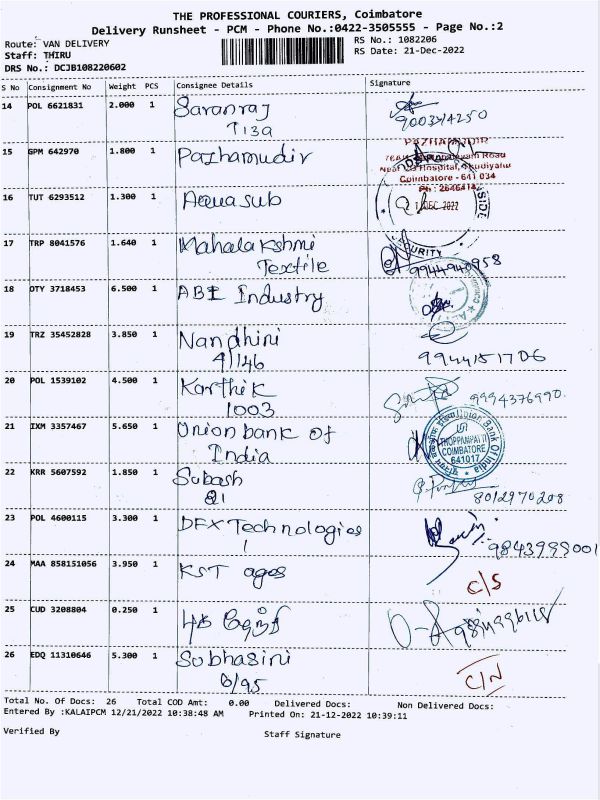 THE PROFESSIONAL COURIERS, Coimbatore
Delivery Runsheet - PCM - Phone No.:0422-3505555 - Page No.:2
Route: VAN DELIVERY
RS No.: 1082206
Staff: THIRU
RS Date: 21-Dec-2022
DRS No.: DCJB108220602
S No Consignment No Weight PCS Consignee Details Signature
14 POL 6621831 2.000 1 Saranraj
9003414250
15 GPM 642970 1.800 1 Pazhamudir
PAZHAMUDIR
Coimbatore - 641 034
16 TUT 6293512 1.300 1 Aquasub
21 DEC 2022
SECURITY
17 TRP 8041576 1.640 1 Mahalakshmi
Textile 9944940958
18 OTY 3718453 6.500 1 ABI Industry
19 TRZ 35452828 3.850 1 Nandhini
4/146 9944151706
20 POL 1539102 4.500 1 Karthik
1003 9994376990.
21 IXM 3357467 5.650 1 Union bank of
India
Union Bank Of India
COIMBATORE
641017
22 KRR 5607592 1.850 1 Subash
81 8012970208
23 POL 4600115 3.300 1 DFX Technologies
1 9843999001
24 MAA 858151056 3.950 1 KST ages
C/S
25 CUD 3208804 0.250 1
26 EDQ 11310646 5.300 1 Subhasini
6/95 C/N
Total No. Of Docs: 26 Total COD Amt: 0.00 Delivered Docs: Non Delivered Docs:
Entered By :KALAIPCM 12/21/2022 10:38:48 AM Printed On: 21-12-2022 10:39:11
Verified By Staff Signature